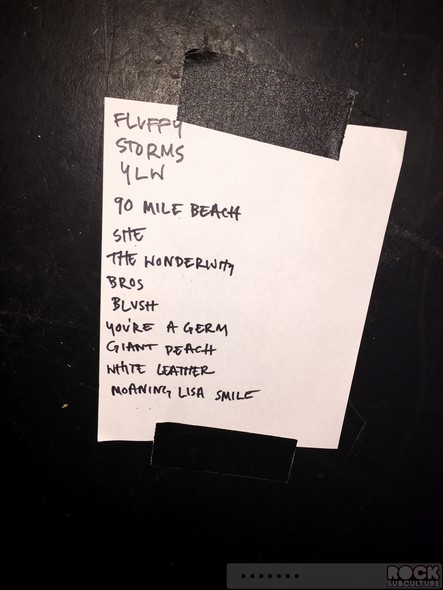 FLUFFY
STORMS
YLW
90 MILE BEACH
SHE
THE WONDERWHY
BROS
BLUSH
YOU'RE A GERM
GIANT PEACH
WHITE LEATHER
MOANING LISA SMILE
ROCK
SUBCULTURE